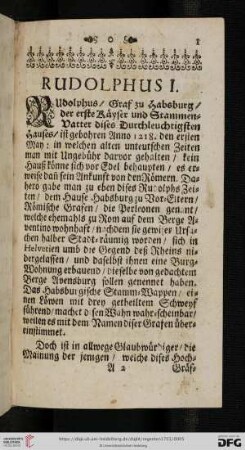 1
RUDOLPHUS I.
RUdolphus / Graf zu Habsburg /
der erste Käyser und Stammen-
Vatter dises Durchleuchtigsten
Hauses / ist gebohren Anno 1218. den ersten
May: in welchen alten unteutschen Zeiten
man mit Ungebühr darvor gehalten / kein
Hauß könne sich vor Edel behaupten / es er-
weise dañ sein Ankunft von den Römern. Da-
hero gabe man zu eben dises Rudolphs Zei-
ten / dem Hause Habsburg zu Vor-Eltern /
Römische Grafen / die Perleonen genennt /
welche ehemahls zu Rom auf dem Berge A-
ventino wohnhaft / nachdem sie gewiser Ursa-
chen halber Stadt-raumig worden / sich in
Helvetien umb die Gegend deß Rheins ni-
dergelassen / und daselbst ihnen eine Burg-
Wohnung erbauend / dieselbe von gedachtem
Berge Avensburg sollen genennet haben.
Das Habsburgische Stamm-Wappen / ei-
nen Löwen mit drey getheiltem Schweyf
führend / machet disen Wahn wahrscheinbar /
weilen es mit dem Namen diser Grafen über-
einstimmet.
Doch ist in allwege Glaubwürdiger / die
Mainung der jenigen / welche dises Hoch-
A 2 Gräf-
http://digi.ub.uni-heidelberg.de/diglit/
© Universitätsbibliothek Heidelberg
gefördert durch die
DFG